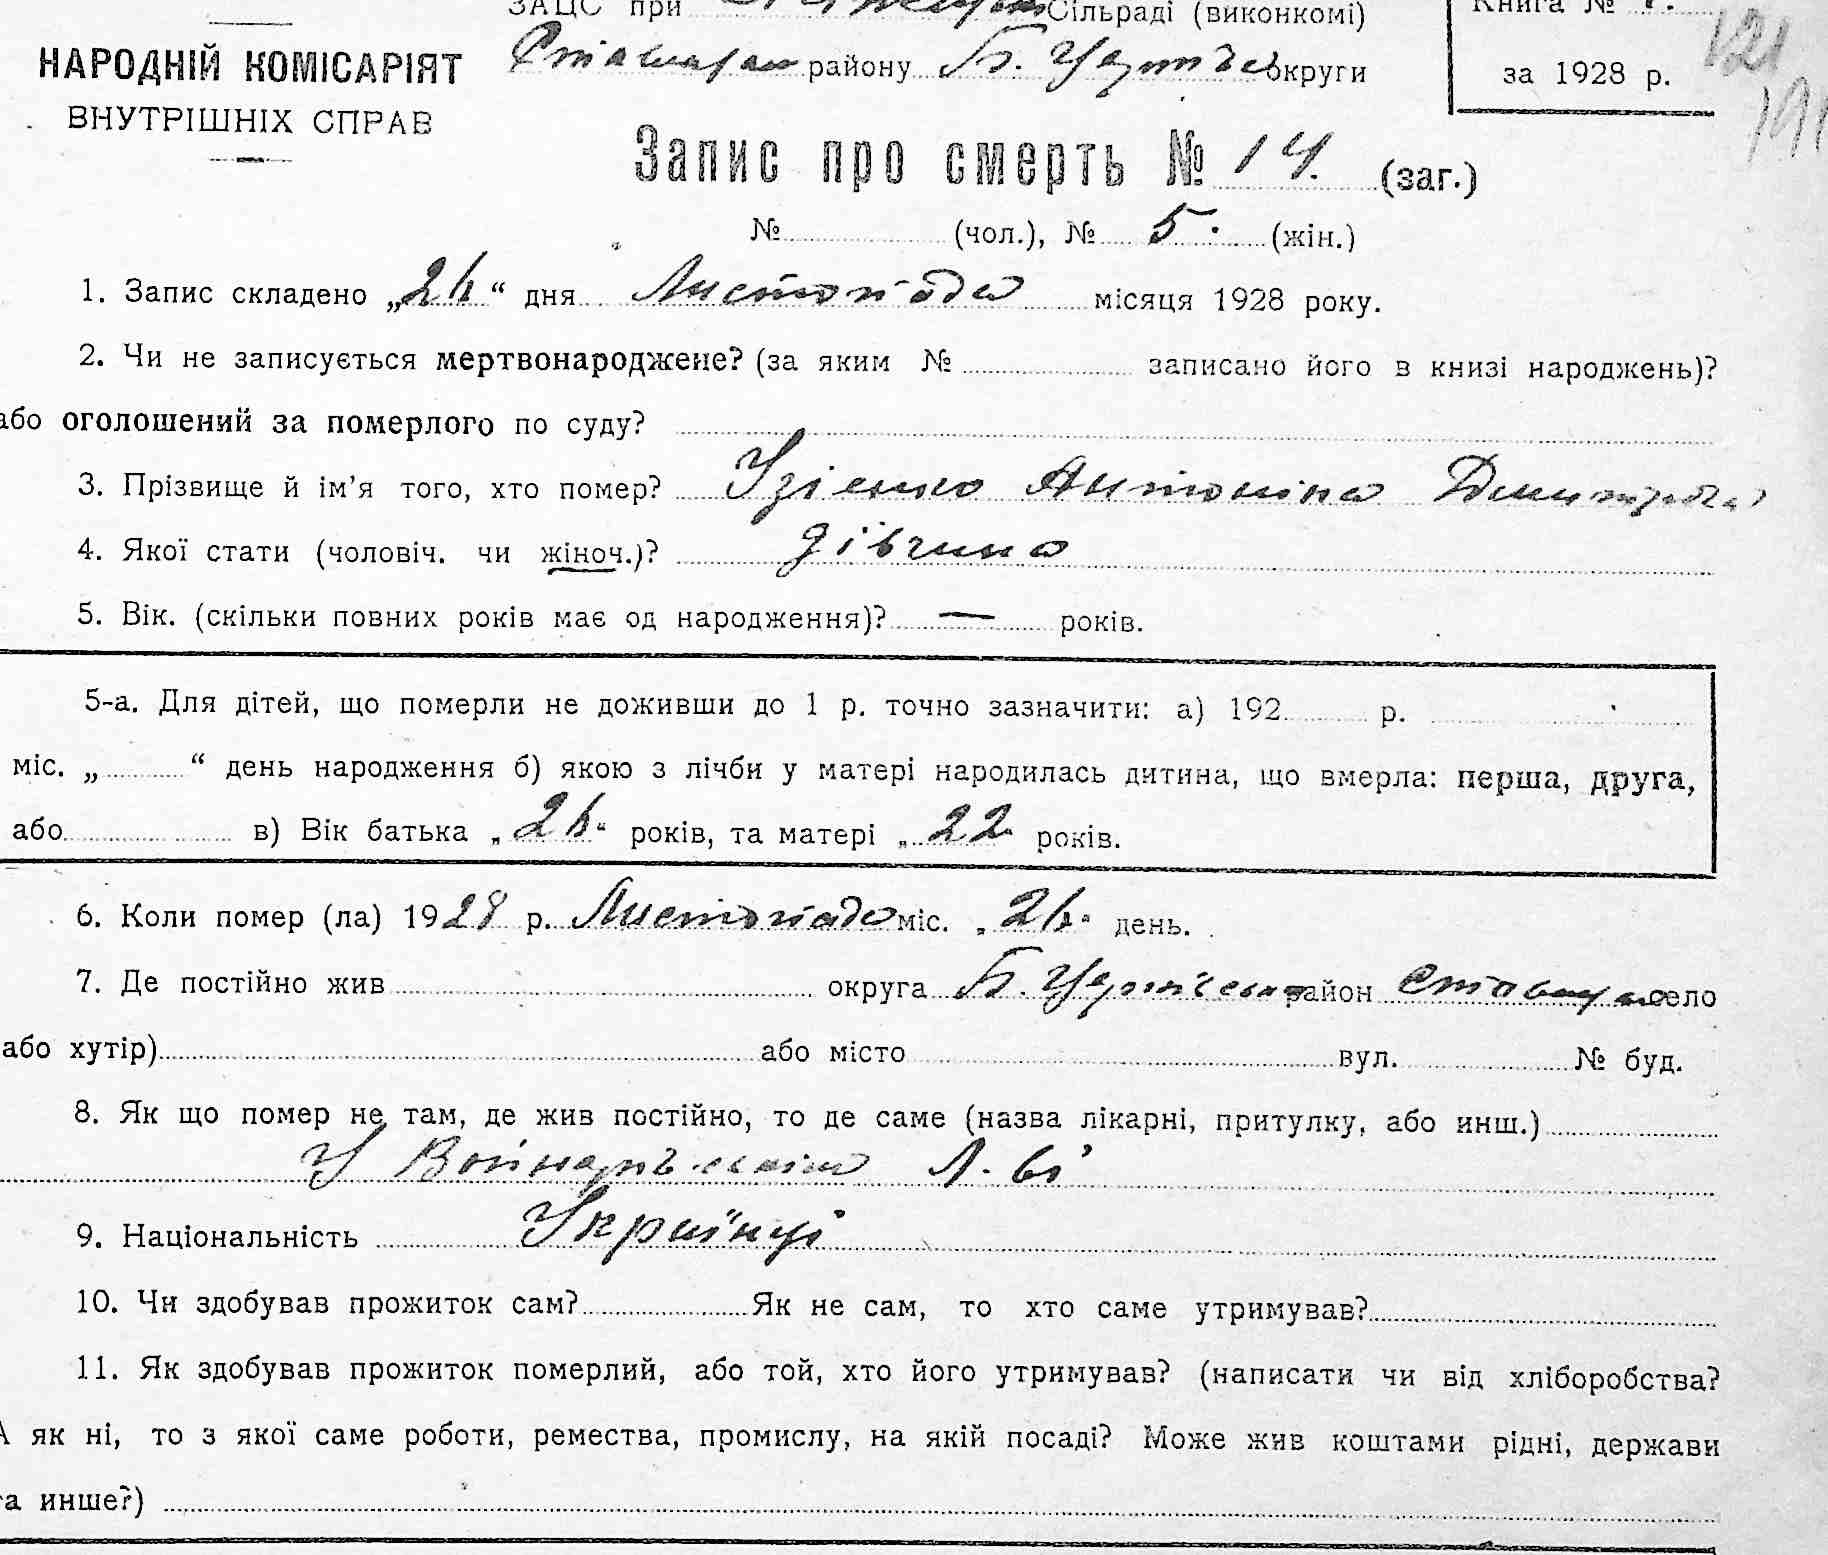 ЗАЦС при Сільраді (виконкомі)
Книга №
НАРОДНІЙ КОМІСАРІЯТ
ВНУТРІШНІХ СПРАВ
району Б. Церків округи
за 1928 р.
121
191
Запис про смерть № 14. (заг.)
№ (чол.), № 5. (жін.)
1. Запис складено „ “ дня Листопада місяця 1928 року.
2. Чи не записується мертвонароджене? (за яким № записано його в книзі народжень)?
або оголошений за померлого по суду?
3. Прізвище й ім’я того, хто помер? Антоніна
4. Якої стати (чоловіч. чи жіноч.)? дівчина
5. Вік. (скільки повних років має од народження)? — років.
5-а. Для дітей, що померли не доживши до 1 р. точно зазначити: а) 192 р.
міс. „ “ день народження б) якою з лічби у матері народилась дитина, що вмерла: перша, друга,
або в) Вік батька „ “ років, та матері „ 22 років.
6. Коли помер (ла) 1928 р. Листопада міс. „ день.
7. Де постійно жив округа Б. Церківська район село
або хутір) або місто вул. № буд.
8. Як що помер не там, де жив постійно, то де саме (назва лікарні, притулку, або инш.)
У
9. Національність Українці
10. Чи здобував прожиток сам? Як не сам, то хто саме утримував?
11. Як здобував прожиток померлий, або той, хто його утримував? (написати чи від хліборобства?
А як ні, то з якої саме роботи, ремества, промислу, на якій посаді? Може жив коштами рідні, держави
та инше?)